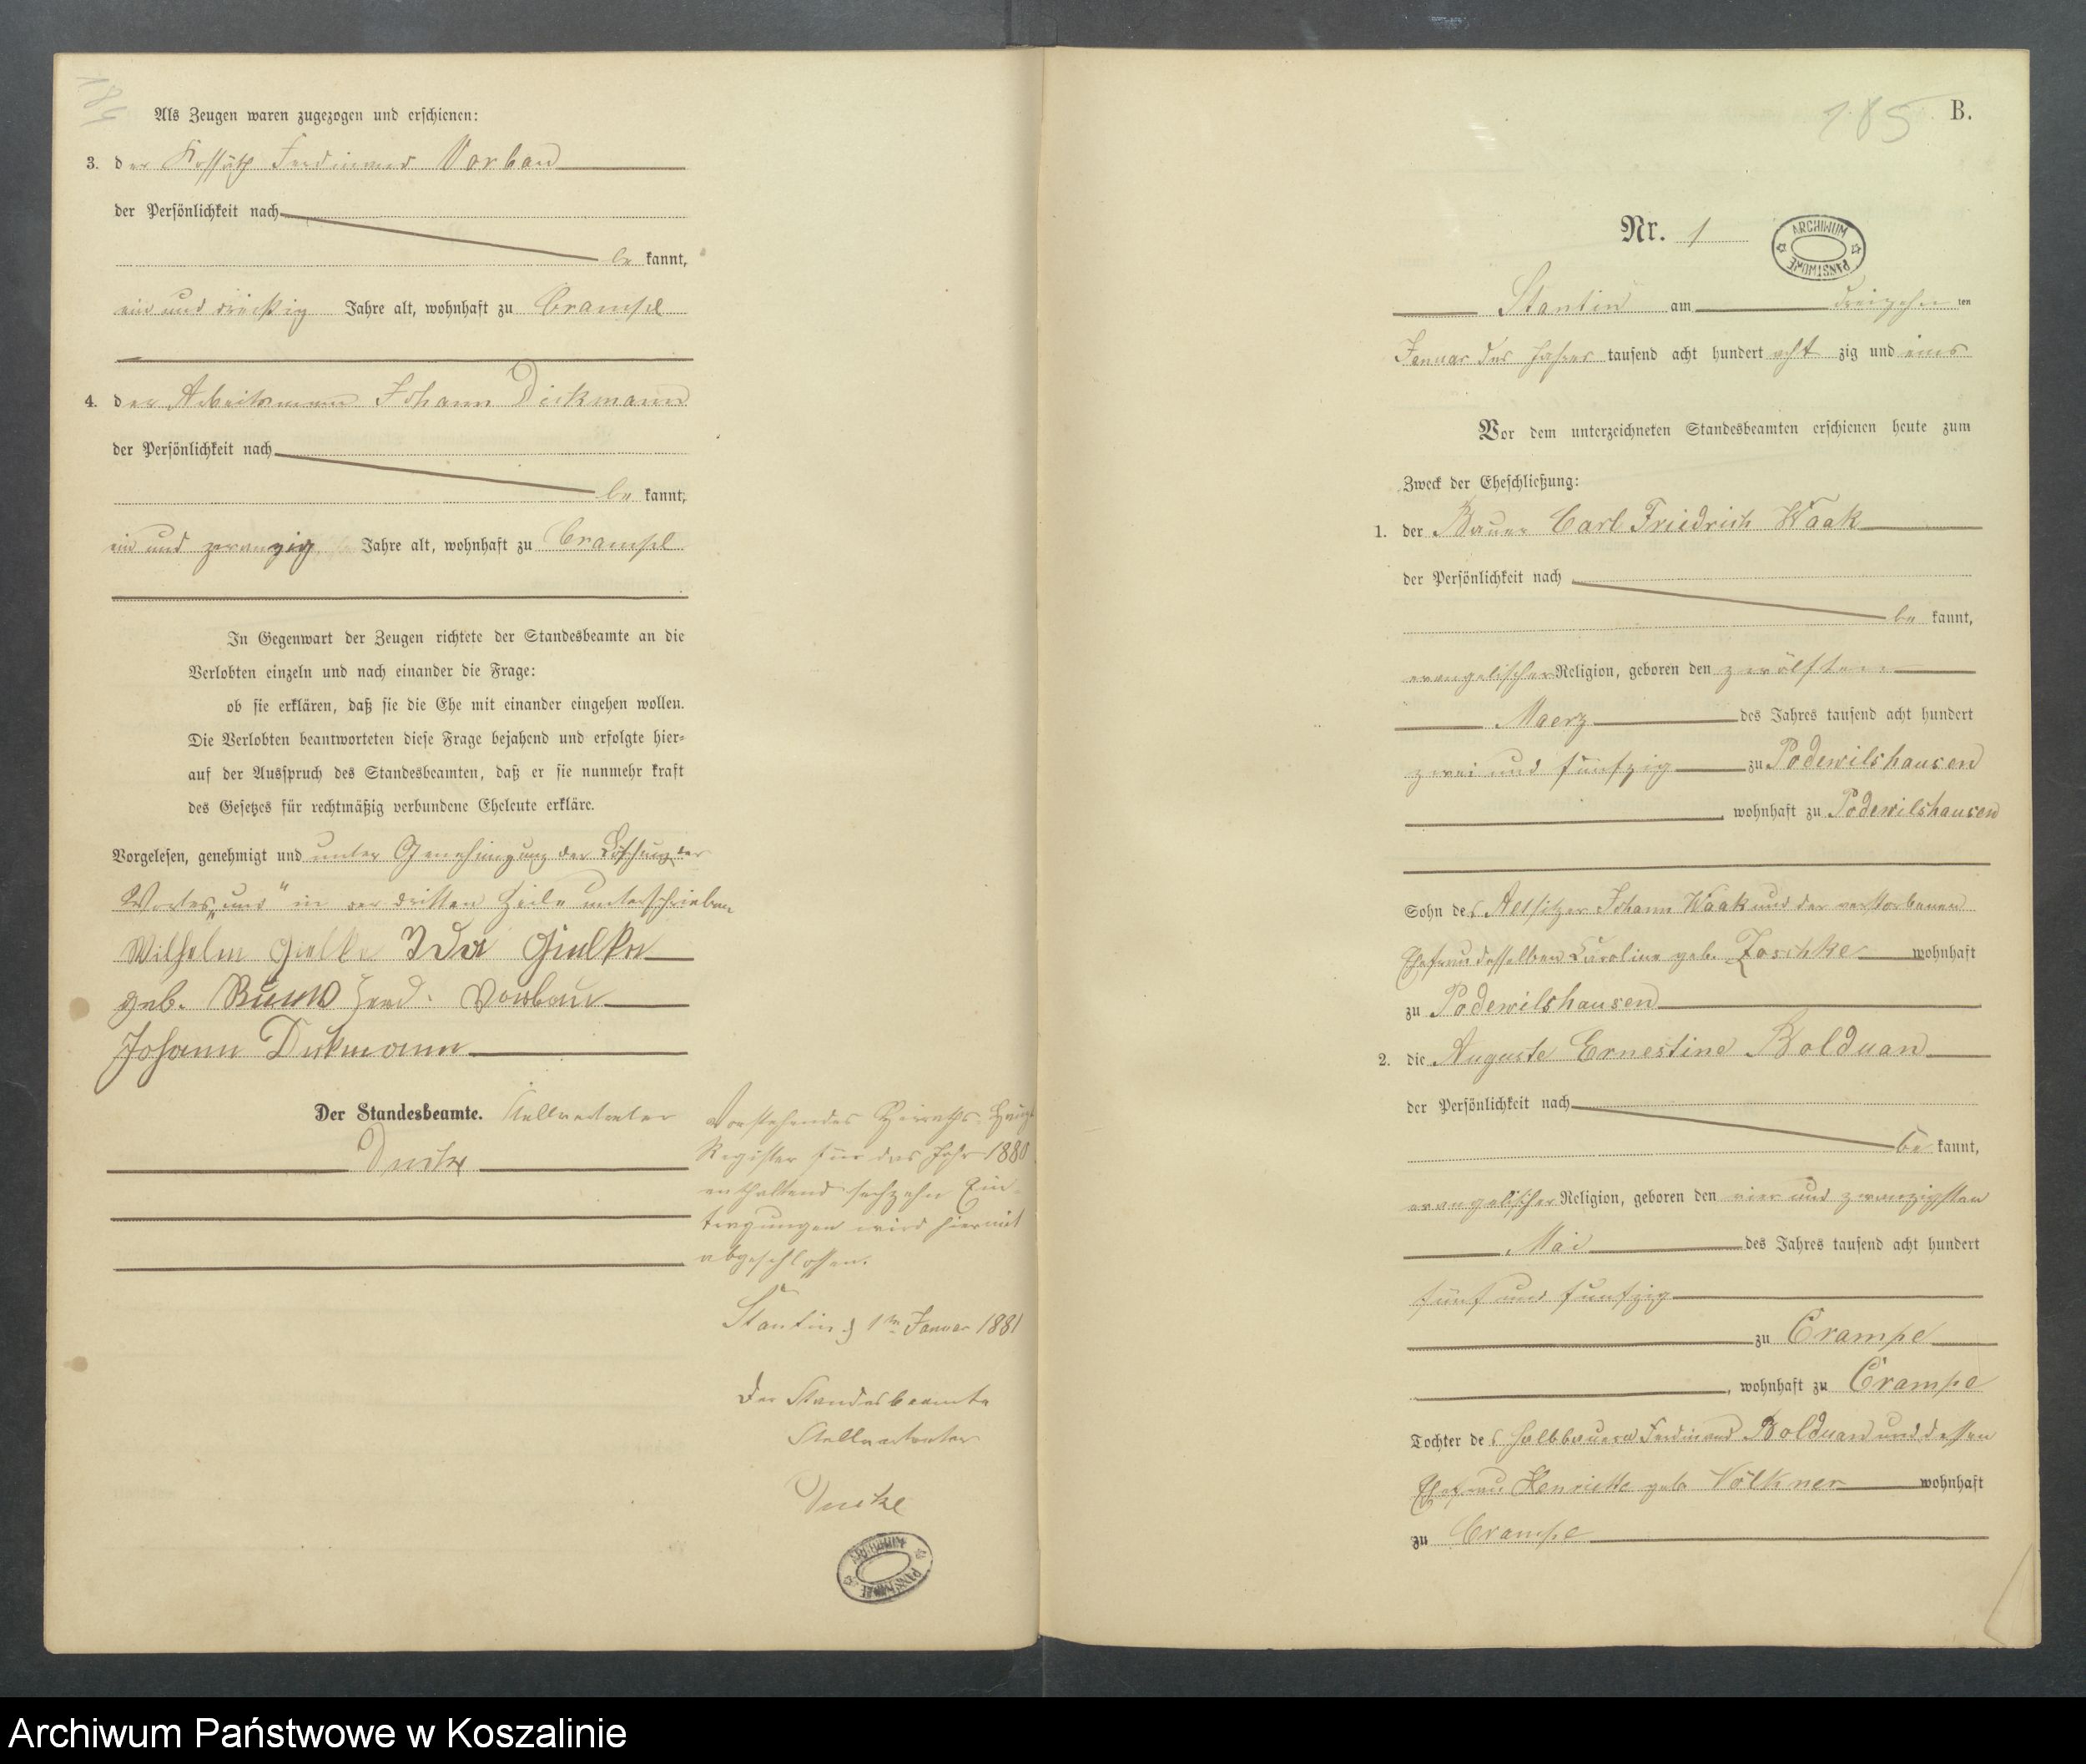 184
Als Zeugen waren zugezogen und erschienen:
3. der Kossäth Ferdinand Vorbau
der Persönlichkeit nach
be kannt,
ein und dreißig Jahre alt, wohnhaft zu Crampe
4. der Arbeitsmann Johann Dickmann
der Persönlichkeit nach
be kannt,
ein und zwanzig Jahre alt, wohnhaft zu Crampe
In Gegenwart der Zeugen richtete der Standesbeamte an die
Verlobten einzeln und nach einander die Frage:
ob sie erklären, daß sie die Ehe mit einander eingehen wollen.
Die Verlobten beantworteten diese Frage bejahend und erfolgte hier-
auf der Ausspruch des Standesbeamten, daß er sie nunmehr kraft
des Gesetzes für rechtmäßig verbundene Eheleute erkläre.
Vorgelesen, genehmigt und unter Genehmigung der Löschung des
Wortes „und" in der dritten Zeile unterschrieben
Wilhelm Gielke Ida Gielke
geb. Ferd. Vorbau
Johann Dickmann
Der Standesbeamte. Stellvertreter
Vorstehendes Heiraths-Haupt
Register für das Jahr 1880
enthaltend sechzehn Ein-
tragungen wird hiermit
abgeschlossen.
Stantin d 1ten Januar 1881
Der Standesbeamte
Stellvertreter
ARCHIWUM PAŃSTWOWE
185 B.
Nr. 1
ARCHIWUM PAŃSTWOWE
Stantin am dreizehn ten
Januar des Jahres tausend acht hundert acht zig und eins
Vor dem unterzeichneten Standesbeamten erschienen heute zum
Zweck der Eheschließung:
1. der Bauer Carl Friedrich Waak
der Persönlichkeit nach
be kannt,
evangelischer Religion, geboren den zwölften
Maerz des Jahres tausend acht hundert
zwei und fünfzig zu Podewilshausen
, wohnhaft zu Podewilshausen
Sohn des Altsitzer Johann Waak und der verstorbenen
Ehefrau desselben Caroline geb. Zoschke wohnhaft
zu Podewilshausen
2. die Auguste Ernestine Bolduan
der Persönlichkeit nach
be kannt,
evangelischer Religion, geboren den vier und zwanzigsten
Mai des Jahres tausend acht hundert
fünf und funfzig
zu Crampe
, wohnhaft zu Crampe
Tochter des Halbbauern Ferdinand Bolduan und dessen
Ehefrau Henriette geb Völkner wohnhaft
zu Crampe
Archiwum Państwowe w Koszalinie